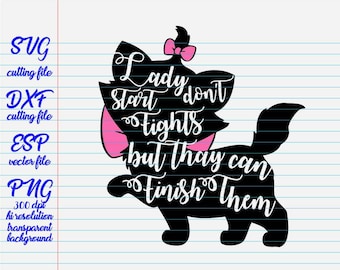 SVG
cutting file
DXF
cutting file
ESP
vector file
PNG
300 dpt
hi resolution
transparent
background
Lady
start don't
Fights
but thay can
Finish Them